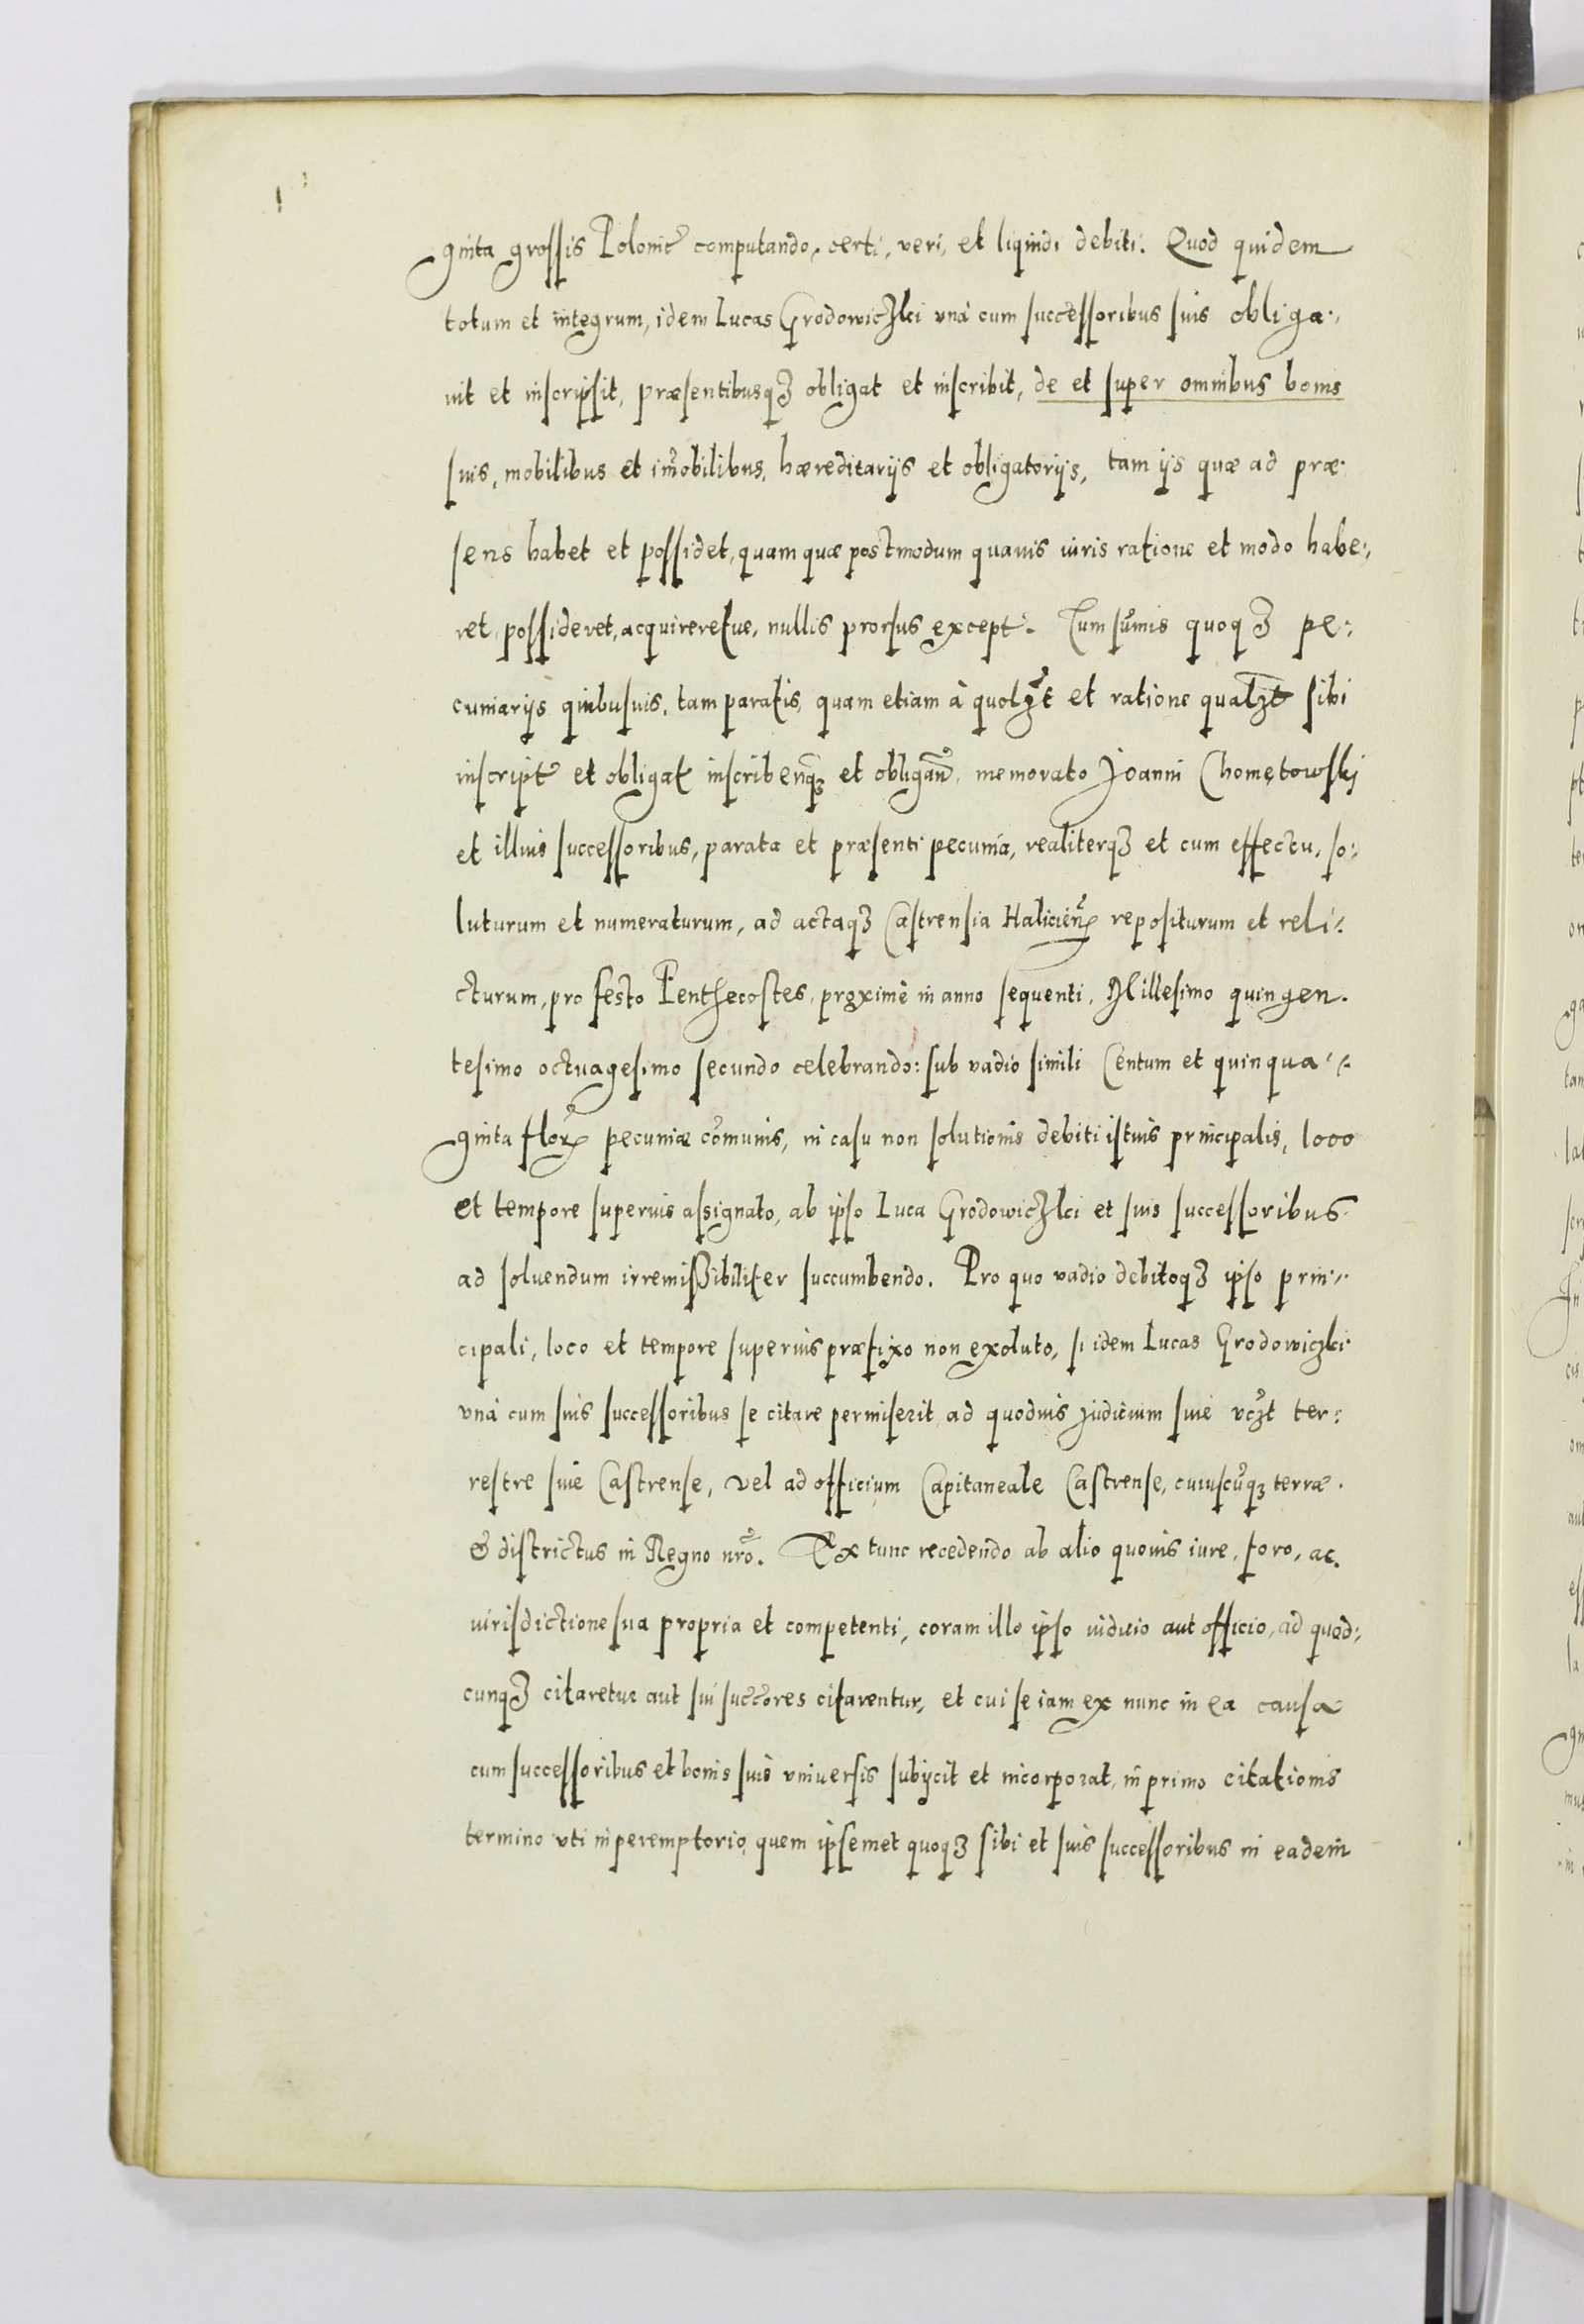 ginta grossis Polonic̄ computando, certi, veri, et liquidi debiti. Quod quidem
totum et integrum, idem Lucas Grodowiczki vnà cum successoribus suis obliga:,
uit et inscripsit, præsentibusqʒ obligat et inscribit, de et super omnibus bonis
suis, mobilibus et im̃obilibus, hæreditarijs et obligatorijs, tam ijs quæ ad præ:
sens habet et possidet, quam quæ postmodum quauis iuris ratione et modo habe:,
ret, possideret, acquireretue, nullis prorsus except̃. Tum sum̃is quoqʒ pe:,
cuniarijs quibusuis, tam paratis, quam etiam à quolʒt et ratione qualʒt sibi
inscript̃ et obligat̃ inscribenq̃ʒ et obligan̄, memorato Joanni Chometowski
et illius successoribus, parata et præsenti pecunia, realiterqʒ et cum effectu, so:,
luturum et numeraturum, ad actaqʒ Castrensia Halicien̄ repositurum et reli:,
cturum, pro festo Penthecostes, proximè in anno sequenti, Millesimo quingen.
tesimo octuagesimo secundo celebrando: sub vadio simili Centum et quinqua:,
ginta flor̃ pecuniæ com̃unis, in casu non solutionis debiti istius principalis, loco
et tempore superius assignato, ab ipso Luca Grodowiczki et suis successoribus
ad soluendum irremißibiliter succumbendo. Pro quo vadio debitoqʒ ipso prin:,
cipali, loco et tempore superius præfixo non exoluto, si idem Lucas Grodowiczki
vnà cum suis successoribus se citare permiserit, ad quoduis Judicium siue vc̃ʒt ter:,
restre siue Castrense, vel ad officium Capitaneale Castrense, cuiuscũqʒ terræ.
& districtus in Regno nr̃o. Ex tunc recedendo ab alio quouis iure, foro, ac,
iurisdictione sua propria et competenti, coram illo ipso iudicio aut officio, ad quod:,
cunqʒ citaretur aut sui succ̃ores citarentur, et cui se iam ex nunc in ea causa
cum successoribus et bonis suis vniuersis subijcit et incorporat, in primo citationis
termino vti in peremptorio, quem ipsemet quoqʒ sibi et suis successoribus in eadem